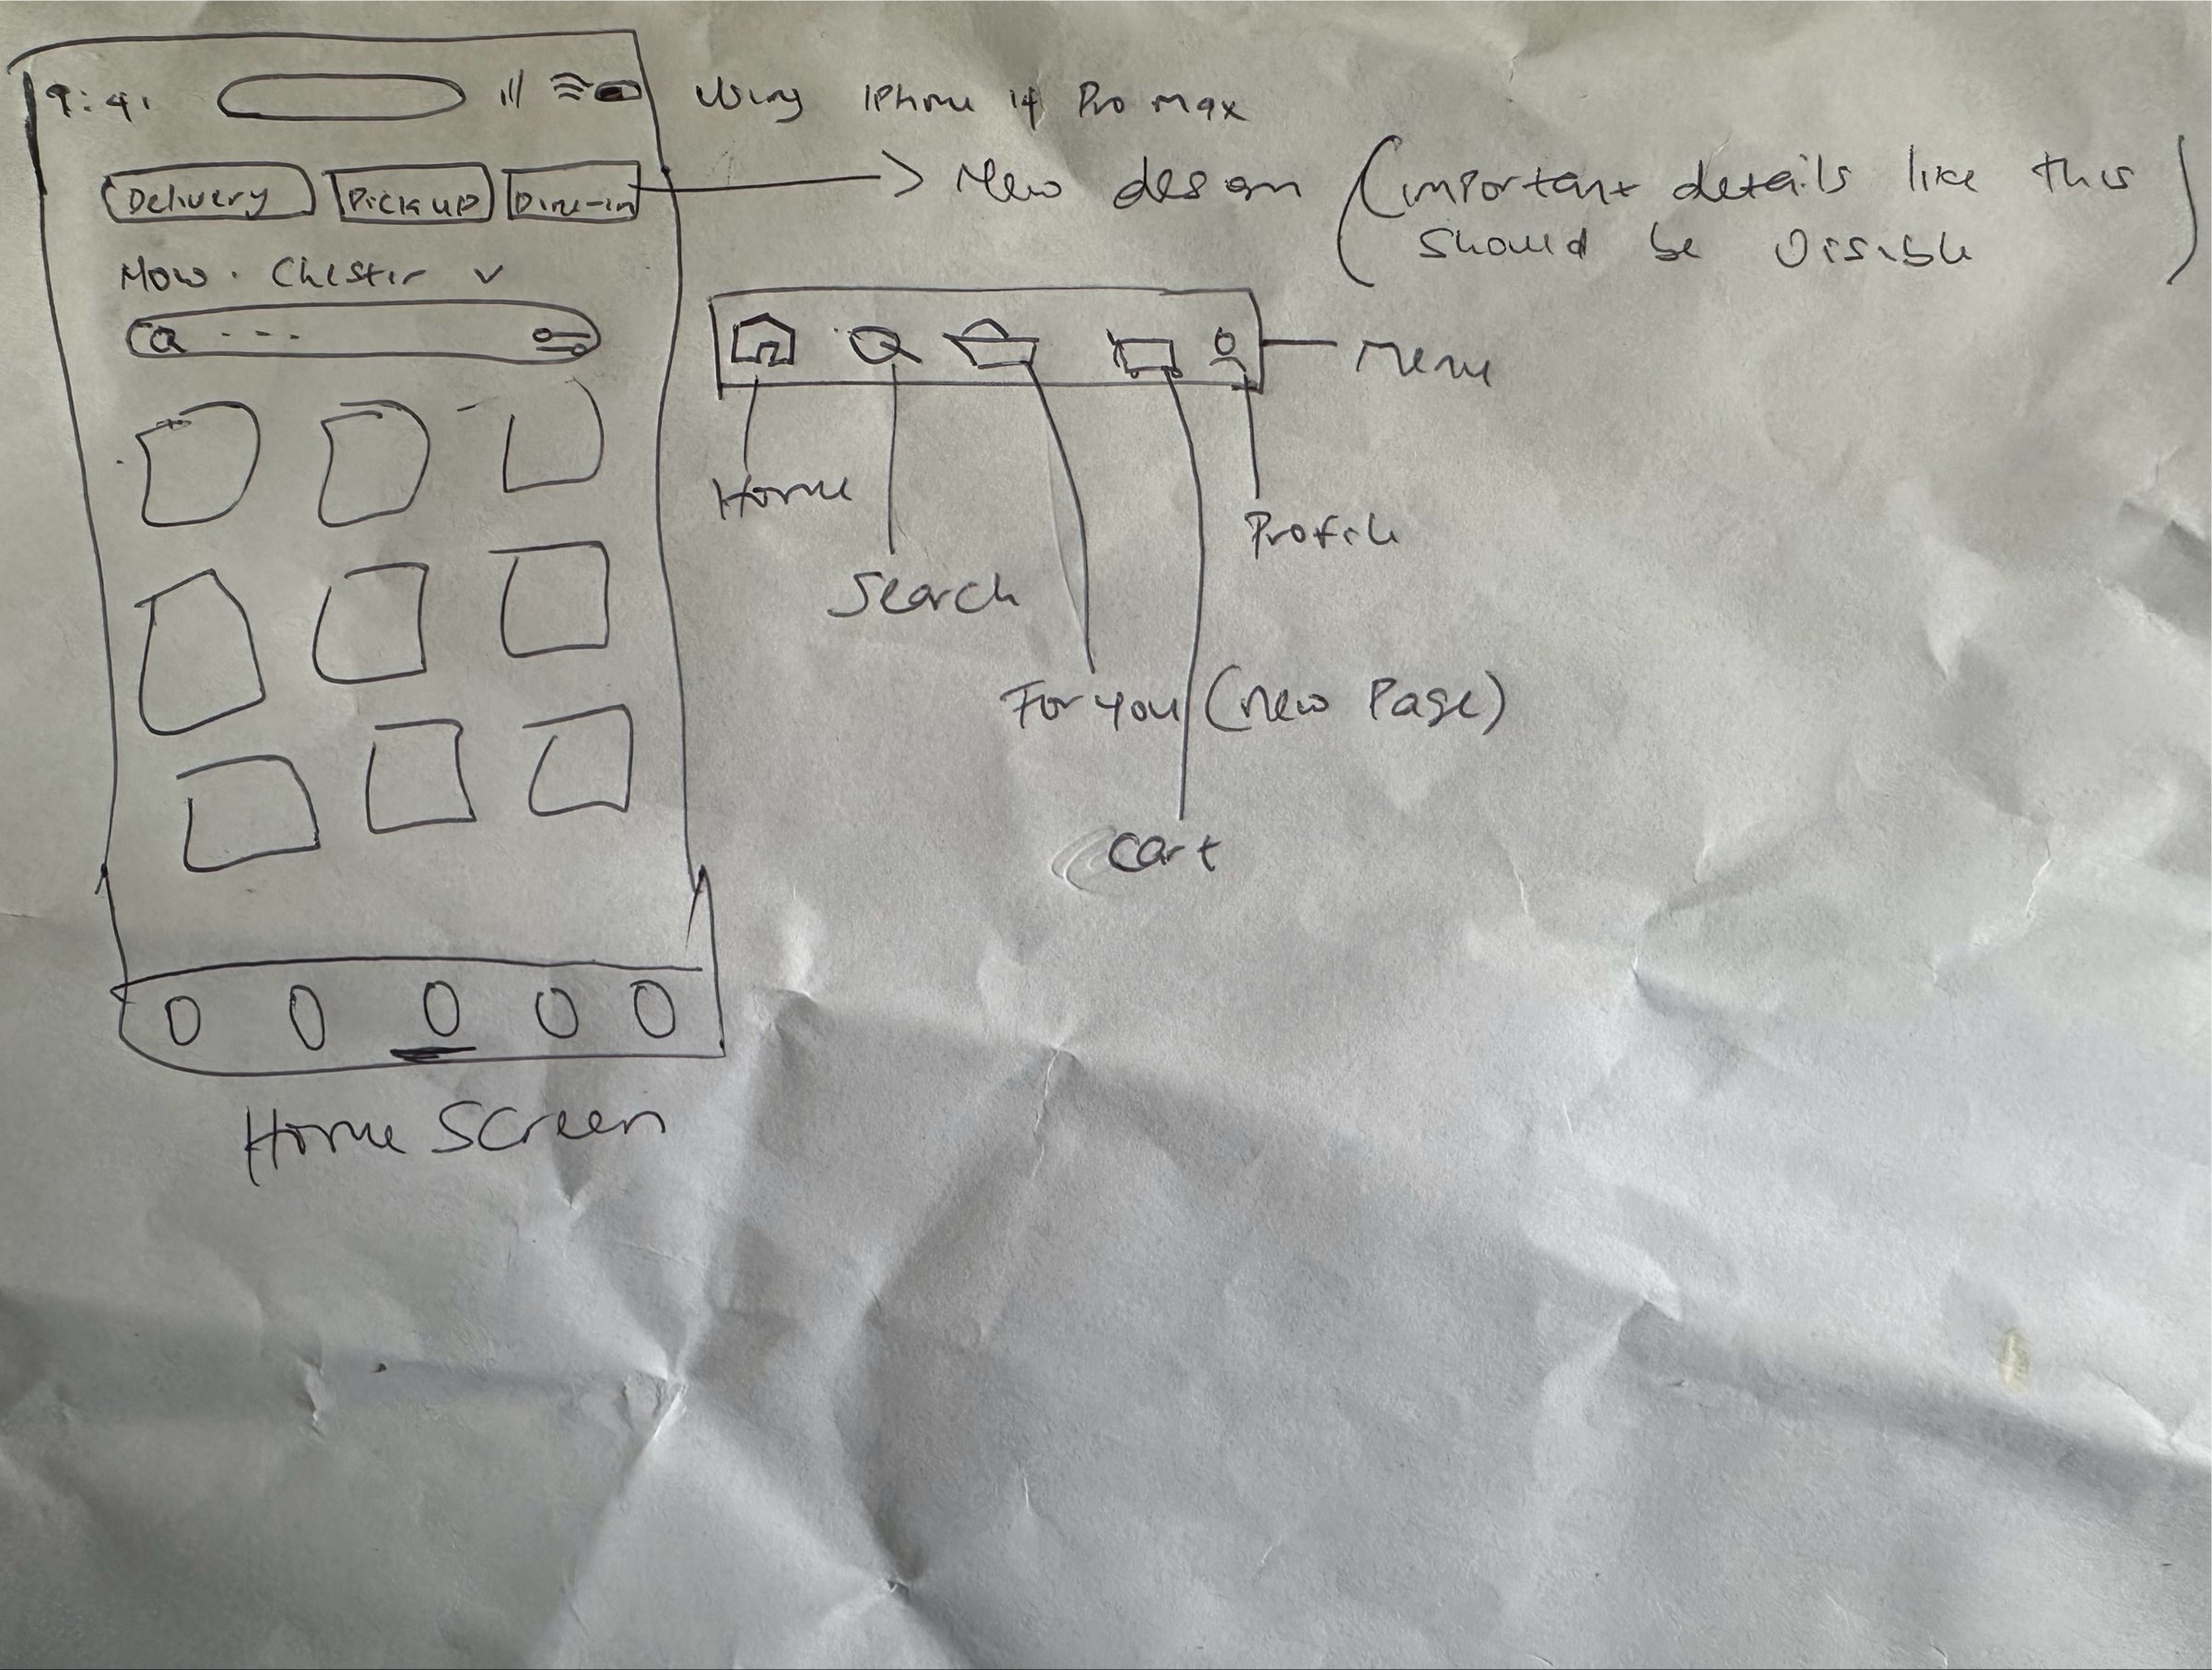 9:41
Using iPhone 14 Pro max
Delivery Pickup Dine-in
New design (important details like this
should be visible
)
Now · Chester v
Menu
Home
Profile
Search
For you (new Page)
Cart
Home Screen